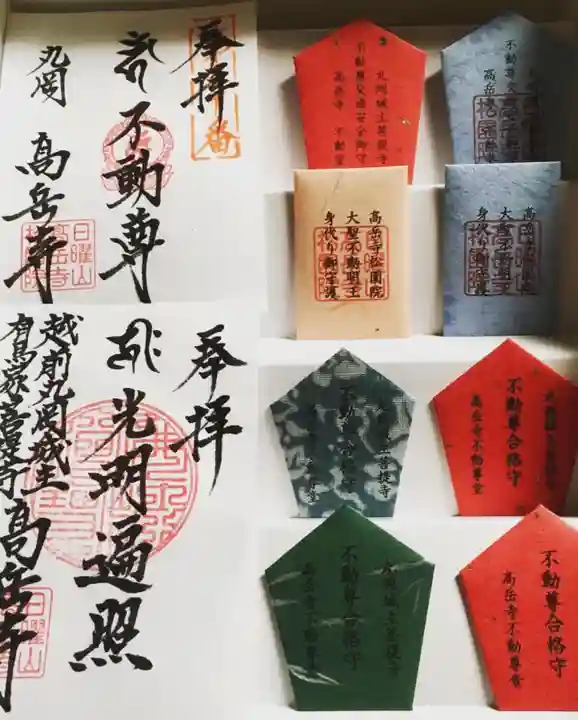 奉拝
不動尊
丸岡
高岳寺
日曜山
高岳寺
松園院
奉拝
光明遍照
越前丸岡城主
有馬家菩提寺
高岳寺
日曜山
丸岡城主菩提寺
不動尊交通安全御守
高岳寺 不動堂
不動尊交
高岳寺
高岳寺松園院
大聖不動明王
身代り御守護
高岳寺松園院
大聖不動明王
身代り御守護
主菩提寺
不動
守
不動尊合格守
高岳寺不動尊堂
城主菩提寺
不動尊合格守
高岳寺不動尊堂
不動尊合格守
高岳寺不動尊堂